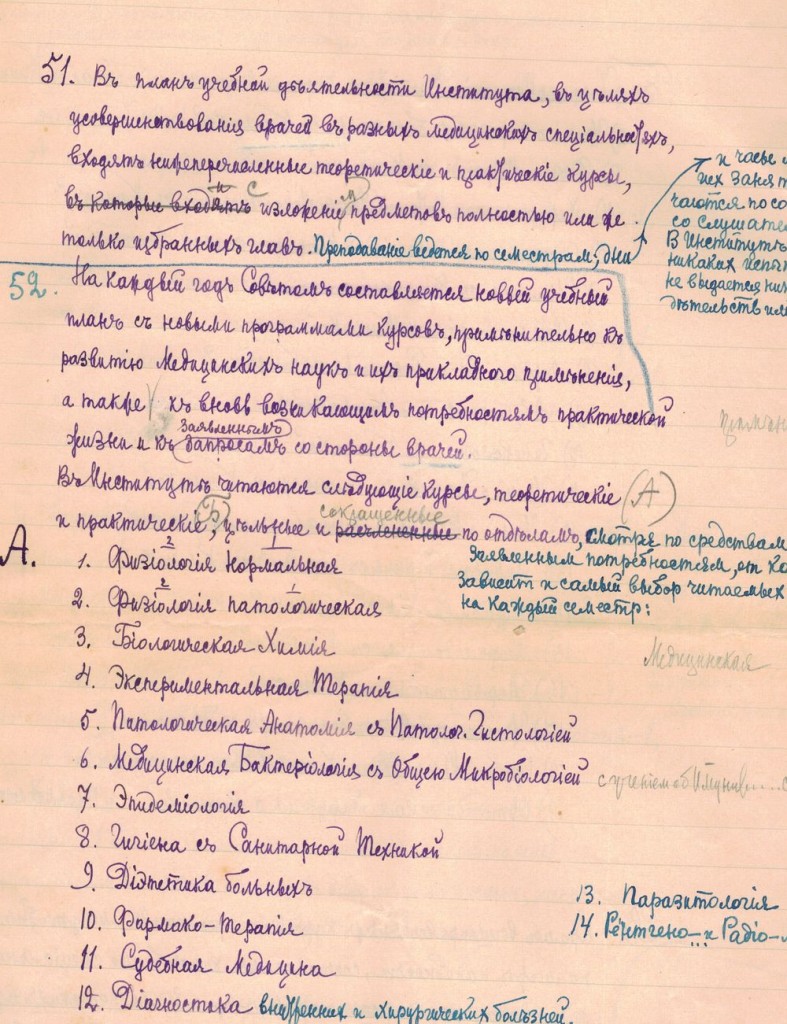 51. Въ планъ учебной дѣятельности Института, въ цѣляхъ
усовершенствованія врачей въ разныхъ медицинскихъ спеціальностяхъ,
входятъ нижеперечисленные теоретическіе и практическіе курсы,
въ которые входятъ и с изложеніем предметовъ полностью или же
только избранныхъ главъ. Преподаваніе ведется по семестрам, дни
и часы
ихъ занят
чаются по со
со слушател
В Институтѣ
никаких испы
не выдается ни
дѣтельств или
52. На каждый годъ Совѣтомъ составляется новый учебный
планъ съ новыми программами курсовъ, примѣнительно къ
развитію Медицинскихъ наукъ и ихъ прикладного примѣненія,
а также къ вновь возникающимъ потребностямъ практической
примѣни
заявленнымъ
жизни и къ запросамъ со стороны врачей.
Въ Институтѣ читаются слѣдующіе курсы, теоретическіе (А)
(Б) сокращенные
и практическіе, цѣльные и расчлененные по отдѣламъ, смотря по средствам
заявленным потребностям, от ко
зависит и самый выбор читаемых
на каждый семестр:
А.
1. Физіологія нормальная
2. Физіологія патологическая
3. Біологическая Химія
Медицинская
4. Экспериментальная Терапія
5. Патологическая Анатомія съ Патолог. Гистологіей
6. Медицинская Бактеріологія съ Общею Микробіологіей
7. Эпидеміологія
8. Гигіена съ Санитарной Техникой
9. Діэтетика больныхъ
10. Фармако-Терапія
11. Судебная Медицина
12. Діагностика внутренних и хирургических болѣзней.
13. Паразитологія
14. Рентгено- и Радіо-